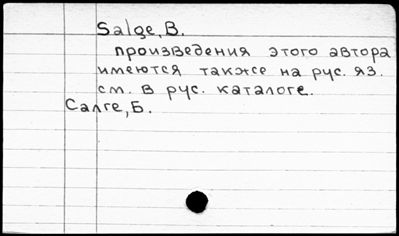 Salge, B.
произведения этого автора
имеются также на рус. яз.
см. в рус. каталоге.
Салге, Б.